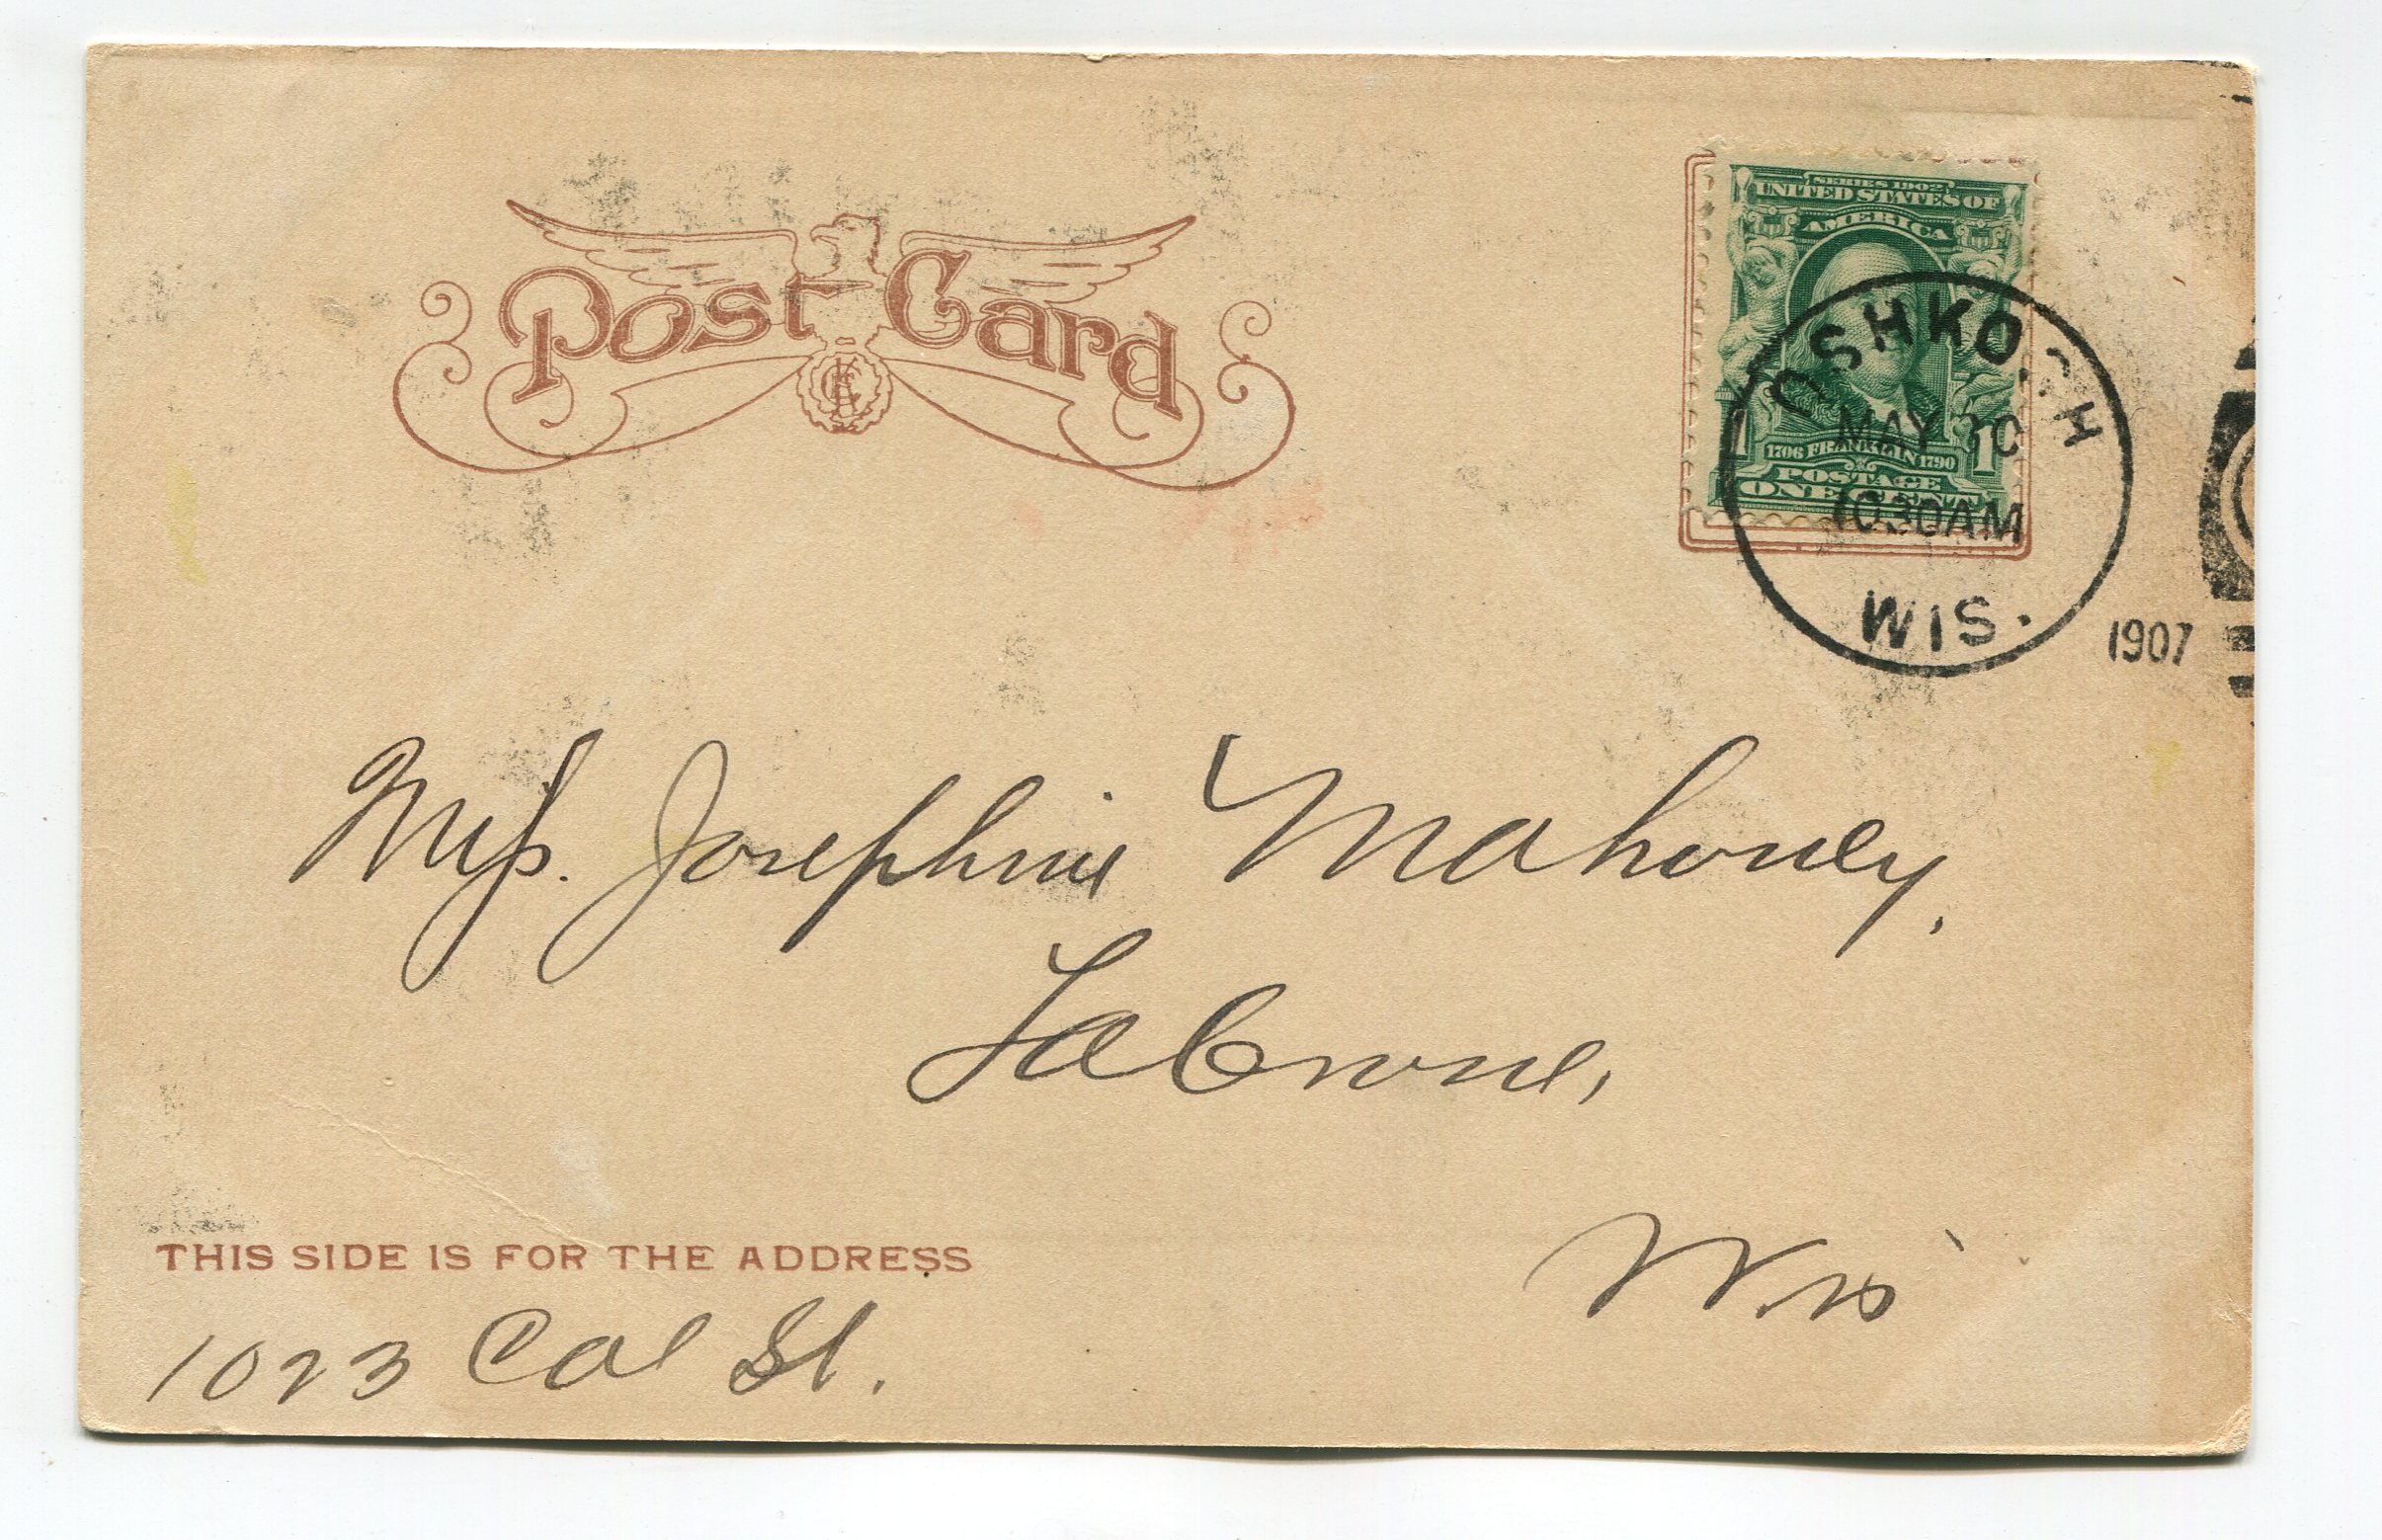 Post Card
SERIES 1902
UNITED STATES OF
AMERICA
1706 FRANKLIN 1790
1 1
POSTAGE
ONE CENT
OSHKOSH
MAY 30
1030AM
WIS.
1907
Miss. Josephine Mahoney,
La Crosse,
Wis
THIS SIDE IS FOR THE ADDRESS
1023 Cal St.